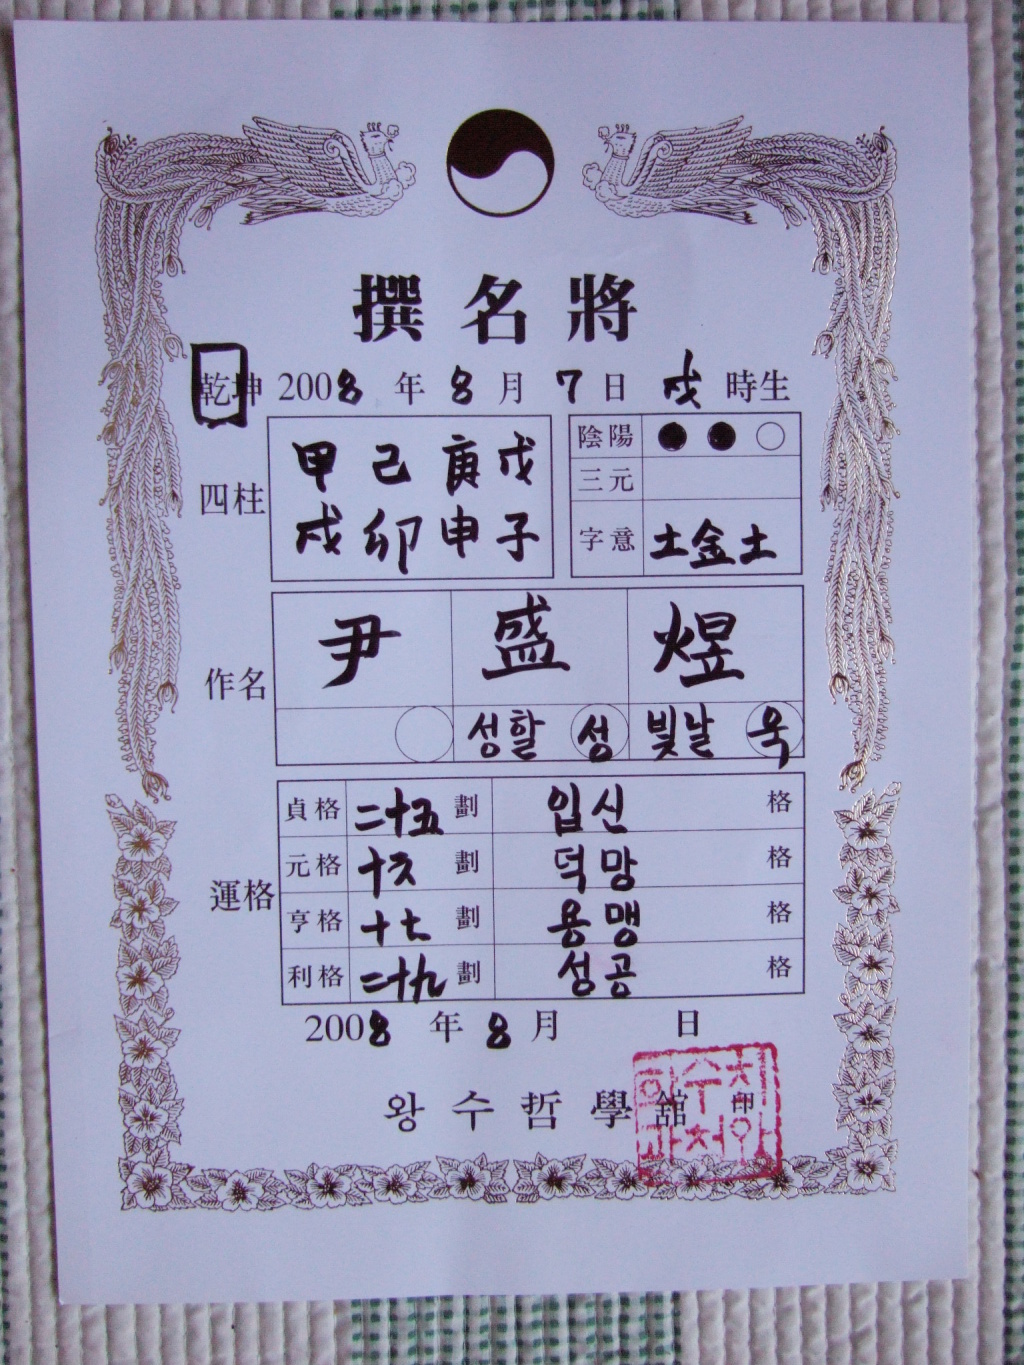 撰名將
乾坤 2008 年 8 月 7 日 戌 時生
四柱
甲 己 庚 戊
戌 卯 申 子
陰陽 ● ● ○
三元
字意 土金土
作名
尹 盛 煜
성할 성 빛날 욱
運格
貞格 二十五 劃 입신 格
元格 十六 劃 덕망 格
亨格 十七 劃 용맹 格
利格 二十九 劃 성공 格
2008 年 8 月 日
왕수哲學舘 印